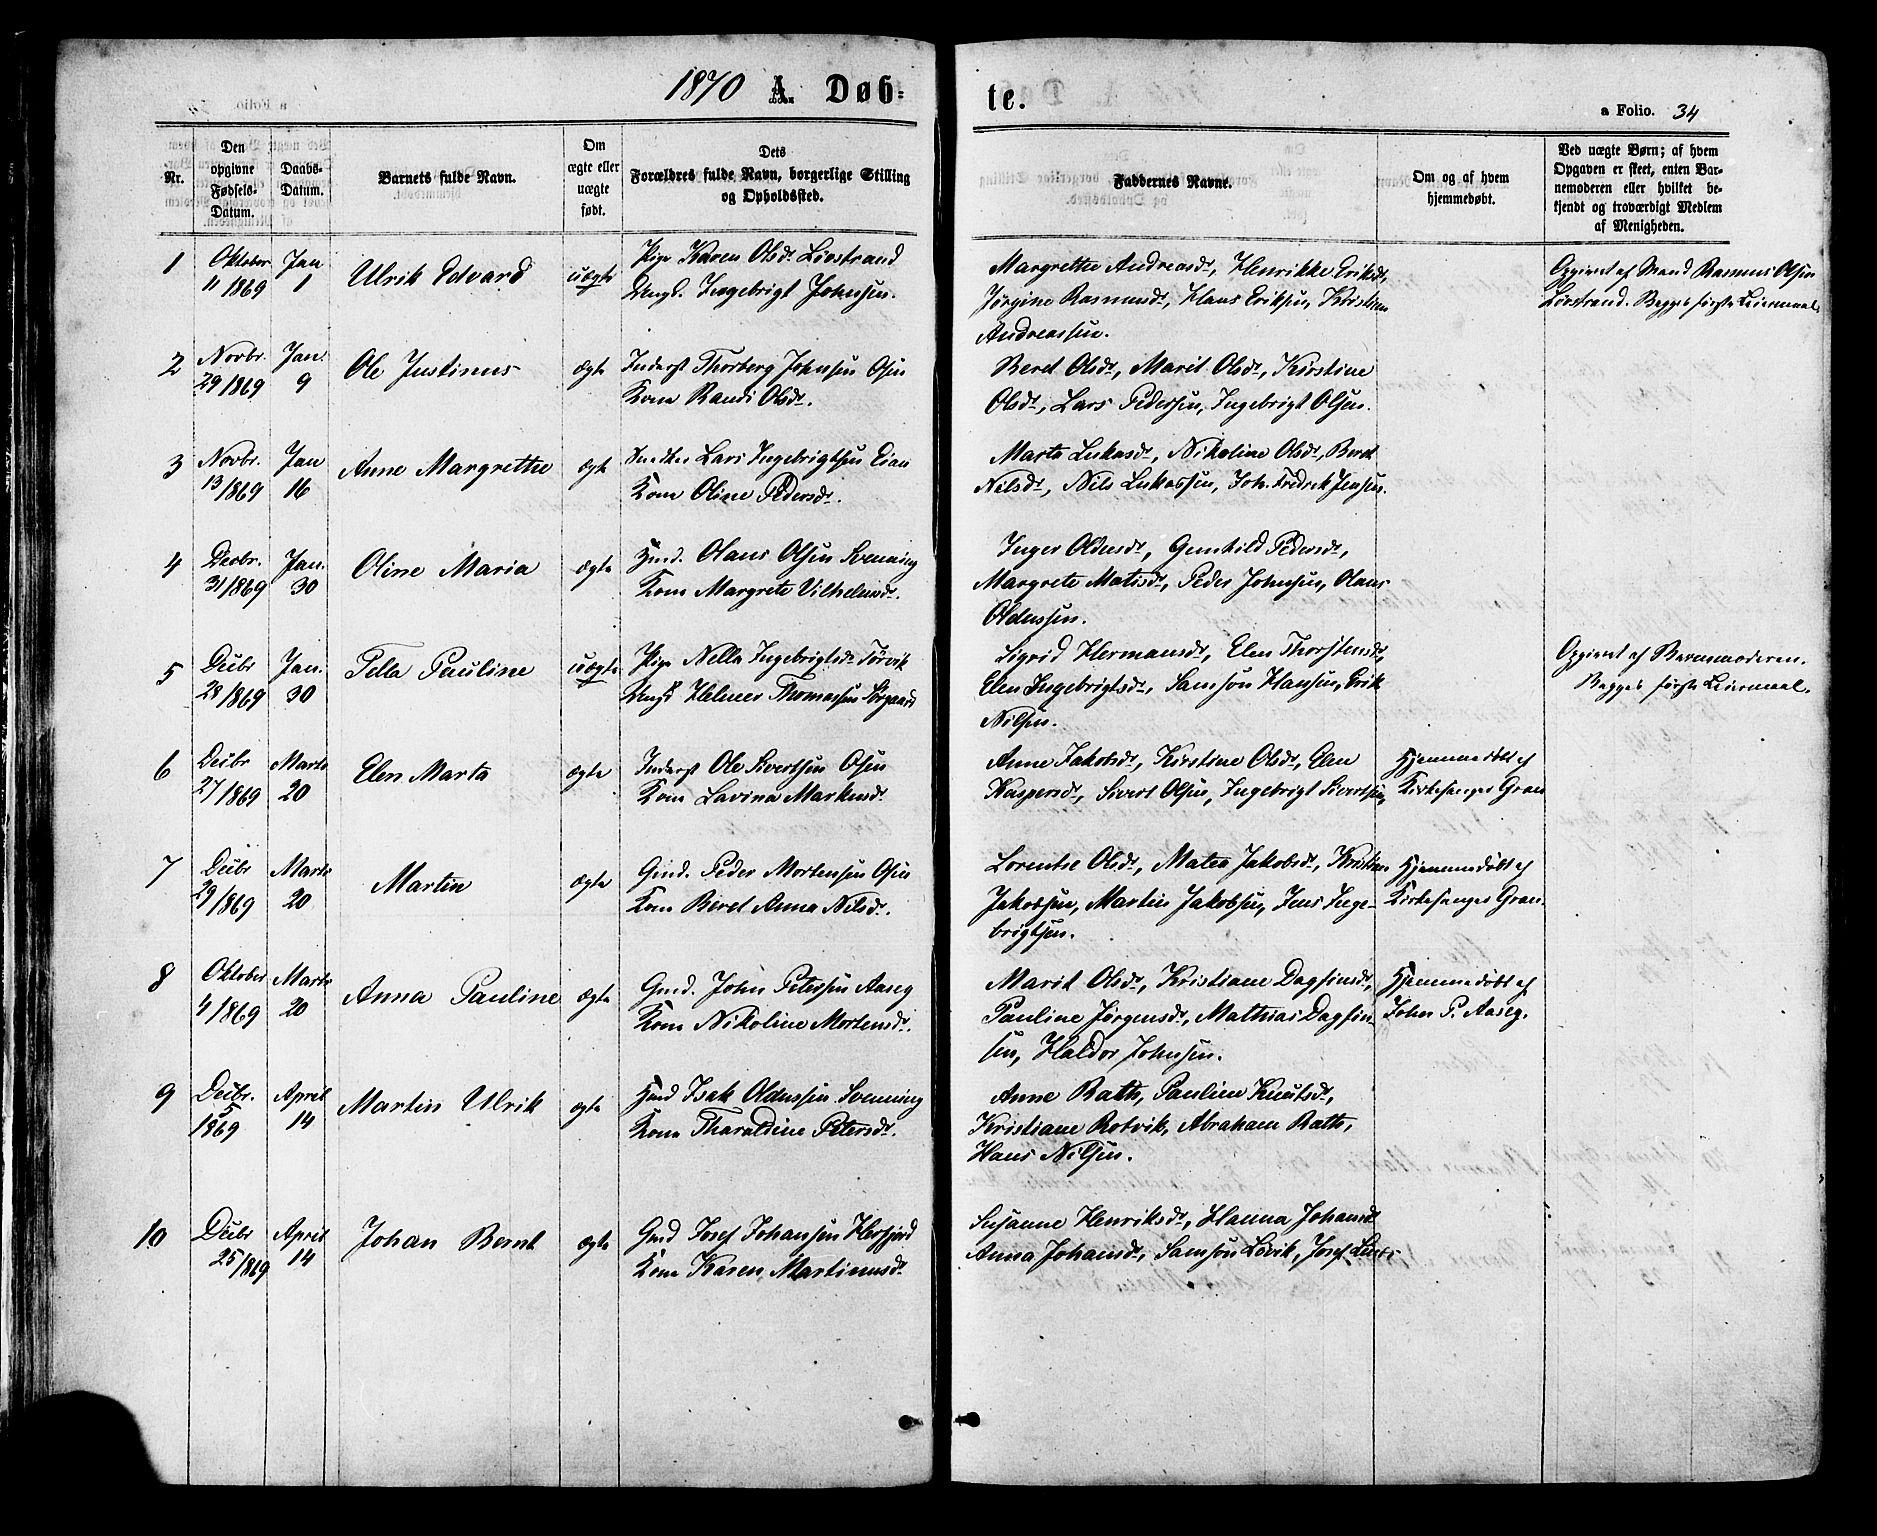 1870 A. Døb-
te.
a Folio. 34
Nr.
Den opgivne Fødsels-Datum.
Daabs-Datum.
Barnets fulde Navn.
Om ægte eller uægte født.
Dets Forældres fulde Navn, borgerlige Stilling og Opholdssted.
Faddernes Navne.
Om og af hvem hjemmedøbt.
Ved uægte Børn; af hvem Opgaven er skeet, enten Barnemoderen eller hvilket bekjendt og troværdigt Medlem af Menigheden.
1 Oktober 11/1869 Jan 1 Ulrik Edvard uægte Pige Karen Olsdt Lövstrand
Ungk. Ingebrigt Johnsen.
Margrethe Andreasdt, Henrikke Eriksdt,
Jørgine Rasmusdt, Hans Eriksen, Kristian
Andreassen.
Opgivet af Mand Rasmus Olsen
Lövstrand. Begges første Leiermaal.
2 Novbr. 29/1869 Jan. 9 Ole Justinus ægte Inderst Thorberg Johnsen Osen
Kone Randi Olsdt.
Beret Olsdt, Marit Olsdt, Kirstine
Olsdt, Lars Pedersen, Ingebrigt Olsen.
3 Novbr. 13/1869 Jan 16 Anne Margrethe ægte Lars Ingebrigtsen Eian
Kone Oline Pedersdt.
Marta Lukasdt, Nikoline Olsdt, Beret
Nilsdt, Nils Lukassen, Joh. Fredrik Jensen.
4 Decbr. 31/1869 Jan. 30 Oline Maria ægte Hmd. Olaus Olsen Svenning
Kone Margrete Vilhelmsdt.
Inger Oldensdt, Gunhild Pedersdt,
Margrete Matisdt, Peder Johnsen, Olaus
Oldussen.
5 Decbr 28/1869 Jan. 30 Pella Pauline uægte Pige Nella Ingebrigtsdt Sörvik
Ungk Helmer Thomassen Sörgaard
Sigrid Hermansdt, Elen Thorstensdt,
Elen Ingebrigtsdt, Samson Hansen, Erik
Nilsen.
Opgivet af Barnemoderen.
Begges første Leiermaal.
6 Decbr 27/1869 Marts 20 Elen Marta ægte Inderst Ole Sivertsen Osen
Kone Lavina Markusdt.
Anne Jakobsdt, Kirstine Olsdt, Elen
Kaspersdt, Sivert Olsen, Ingebrigt Sivertsen,
Hjemmedøbt af
Kirkesanger Gran
7 Decbr 29/1869 Marts 20 Martin ægte Gmd. Peder Mortensen Osen
Kone Beret Anna Nilsdt.
Lorentse Olsdt, Matea Jakobsdt, Kristian
Jakobsen, Martin Jakobsen, Jens Inge-
brigtsen.
Hjemmedøbt af
Kirkesanger Gran.
8 Oktober 4/1869 Marts 20 Anna Pauline ægte Gmd. John Petersen Aaseg
Kone Nikoline Mortensdt.
Marit Olsdt, Kristiane Dagfinsdt,
Pauline Jørgensdt, Mathias Dagfin-
sen, Haldor Johnsen.
Hjemmedøbt af
John P. Aaseg.
9 Decbr. 5 1869 April 14 Martin Ulrik ægte Hmd Isak Oldussen Svenning
Kone Tharaldine Petersdt.
Anne Rath, Pauline Knutsdt,
Kristiane Rotvik, Abraham Rath,
Hans Nilsen.
10 Decbr 25/1869 April 14 Johan Bernt ægte Gmd Josef Johansen Hersfjord
Kone Karen Martinusdt
Susanne Henriksdt, Hanna Johansdt
Anna Johansdt, Samson Lövik, Josef